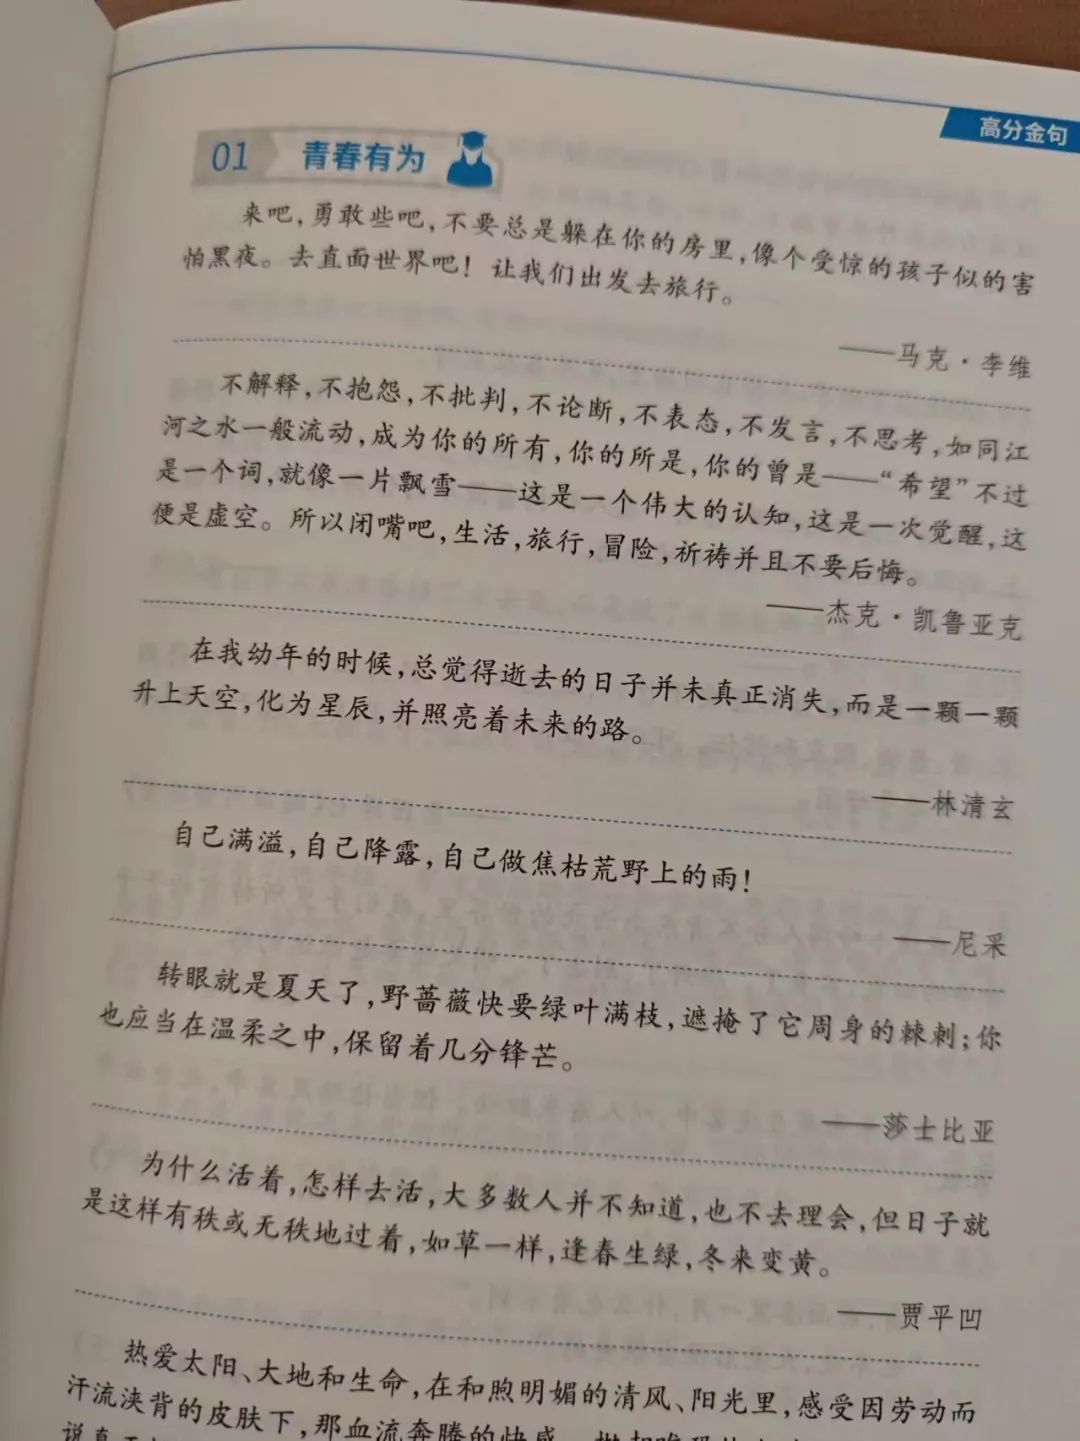 高分金句
01 青春有为
来吧，勇敢些吧，不要总是躲在你的房里，像个受惊的孩子似的害
怕黑夜。去直面世界吧！让我们出发去旅行。
——马克·李维
不解释，不抱怨，不批判，不论断，不表态，不发言，不思考，如同江
河之水一般流动，成为你的所有，你的所是，你的曾是——“希望”不过
是一个词，就像一片飘雪——这是一个伟大的认知，这是一次觉醒，这
便是虚空。所以闭嘴吧，生活，旅行，冒险，祈祷并且不要后悔。
——杰克·凯鲁亚克
在我幼年的时候，总觉得逝去的日子并未真正消失，而是一颗一颗
升上天空，化为星辰，并照亮着未来的路。
——林清玄
自己满溢，自己降露，自己做焦枯荒野上的雨！
——尼采
转眼就是夏天了，野蔷薇快要绿叶满枝，遮掩了它周身的棘刺；你
也应当在温柔之中，保留着几分锋芒。
——莎士比亚
为什么活着，怎样去活，大多数人并不知道，也不去理会，但日子就
是这样有秩或无秩地过着，如草一样，逢春生绿，冬来变黄。
——贾平凹
热爱太阳、大地和生命，在和煦明媚的清风、阳光里，感受因劳动而
汗流浃背的皮肤下，那血流奔腾的快感